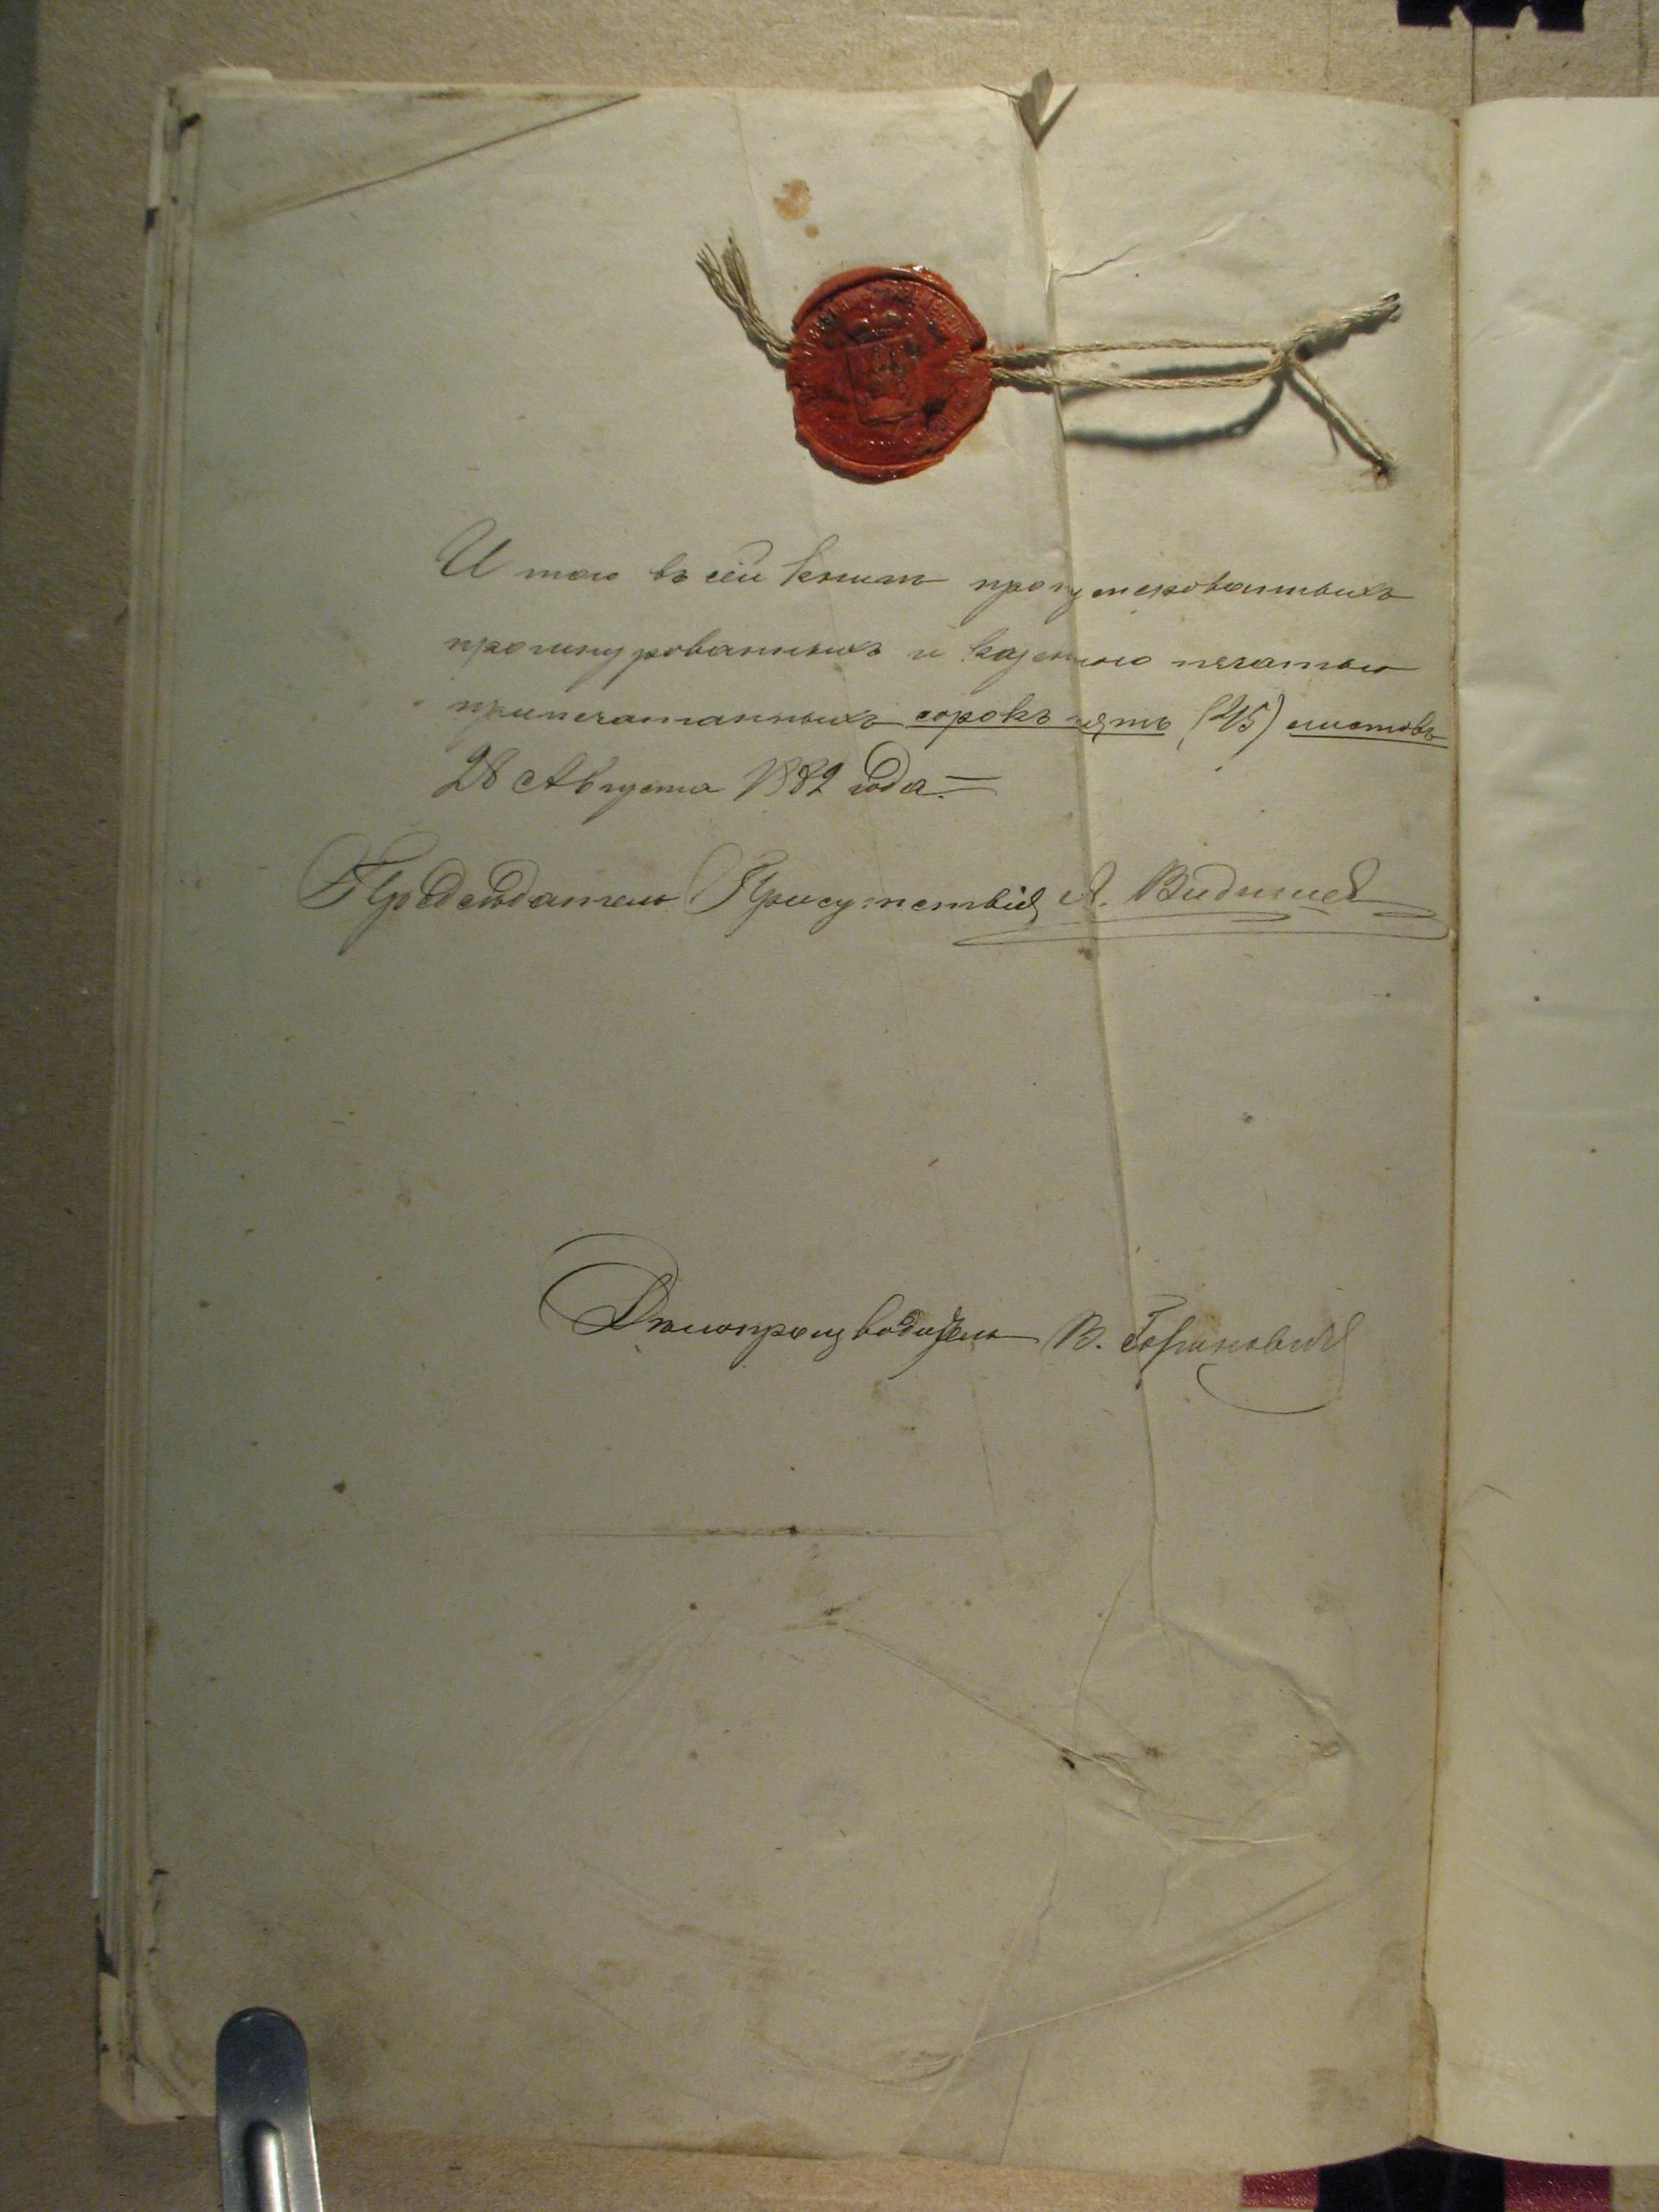 Итого въ сей книгѣ пронумерованныхъ
прошнурованныхъ и казенною печатью
припечатанныхъ сорокъ пять (45) листовъ
28 Августа 1882 года.—
Предсѣдатель Присутствія А.
Дѣлопроизводитель В.